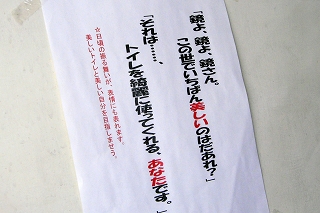 「鏡よ、鏡よ、鏡さん。
この世でいちばん美しいのはだあれ？」
「それは……、
トイレを綺麗に使ってくれる、あなたです。」
☆日頃の振る舞いが、表情にも表れます。
美しいトイレと美しい自分を目指しませう。